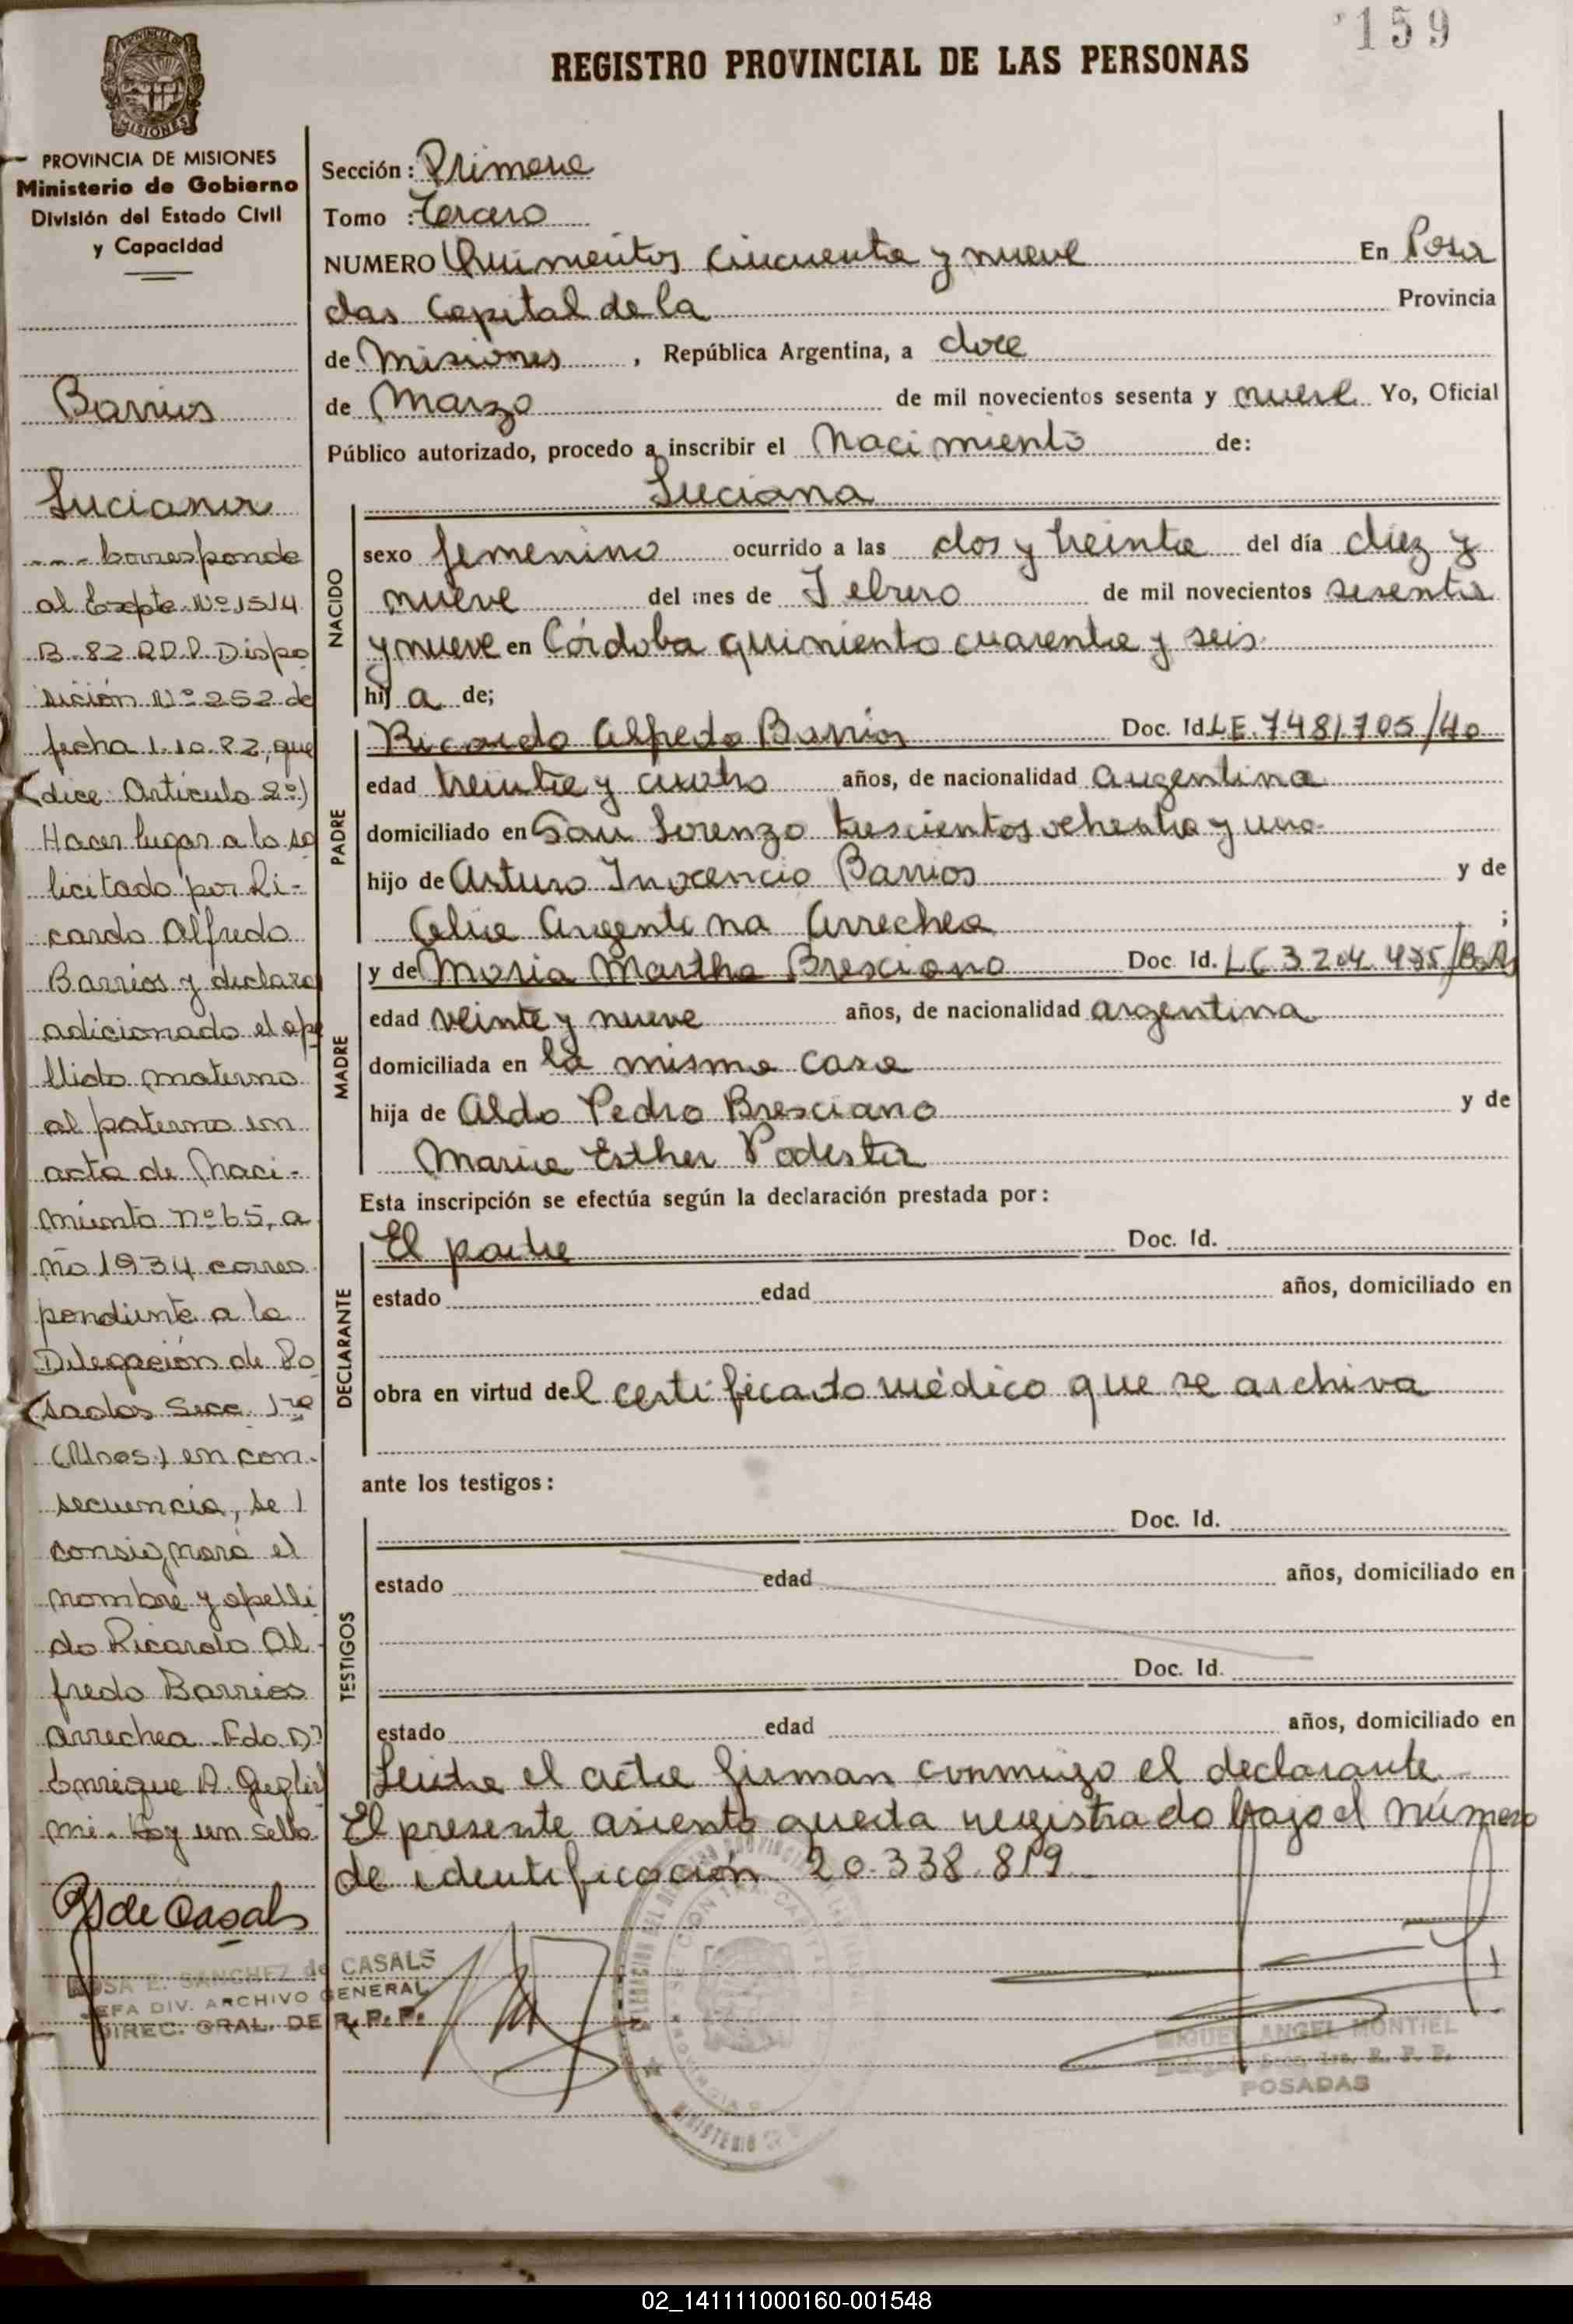 159
REGISTRO PROVINCIAL DE LAS PERSONAS
PROVINCIA DE
MISIONES
PROVINCIA DE MISIONES
Ministerio de Gobierno
División del Estado Civil
y Capacidad
Barrios
Luciana
---Corresponde
al Expte. Nº 1514
B-82 R.P.P. Dispo
sición Nº 252 de
fecha 1.10.82, que
dice: Artículo 2º)
Hacer lugar a lo so
licitado por Ri-
cardo Alfredo
Barrios y declara
adicionado el ape
llido materno
al paterno en
acta de Naci-
miento nº 65, a
ño 1934 corres
pondiente a la
Delegación de Po
sadas Secc. 1ra
(Mnes.) en con-
secuencia, se
consignará el
nombre y apelli
do Ricardo Al-
fredo Barrios
Arrechea. Fdo. D.
Enrique A. Guglial
mi. Hay un sello.
R S de Casals
ROSA E. SANCHEZ de CASALS
JEFA DIV. ARCHIVO GENERAL
DIREC. GRAL. DE R. P. P.
Sección: Primera
Tomo : Tercero
NUMERO Quinientos cincuenta y nueve En Posa
das Capital de la Provincia
de Misiones, República Argentina, a doce
de Marzo de mil novecientos sesenta y nueve Yo, Oficial
Público autorizado, procedo a inscribir el Nacimiento de:
Luciana
NACIDO
sexo femenino ocurrido a las dos y treinta del día diez y
nueve del mes de Febrero de mil novecientos sesenta
y nueve en Córdoba quiniento cuarenta y seis
hija de;
PADRE
Ricardo Alfredo Barrios Doc. Id. LE. 7481705/40
edad treinta y cuatro años, de nacionalidad argentina
domiciliado en San Lorenzo trescientos ochenta y uno
hijo de Arturo Inocencio Barrios y de
Celia Argentina Arrechea ;
MADRE
y de Maria Martha Bresciano Doc. Id. LC 3204.475/Bs As
edad veinte y nueve años, de nacionalidad argentina
domiciliada en la misma casa
hija de Aldo Pedro Bresciano y de
Maria Esther Podesta
Esta inscripción se efectúa según la declaración prestada por:
DECLARANTE
El padre Doc. Id.
estado edad años, domiciliado en
obra en virtud del certificado médico que se archiva
ante los testigos:
TESTIGOS
Doc. Id.
estado edad años, domiciliado en
Doc. Id.
estado edad años, domiciliado en
Leida el acta firman conmigo el declarante
El presente asiento queda registrado bajo el número
de identificación 20.338.819
MIGUEL ANGEL MONTIEL
POSADAS
02_141111000160-001548